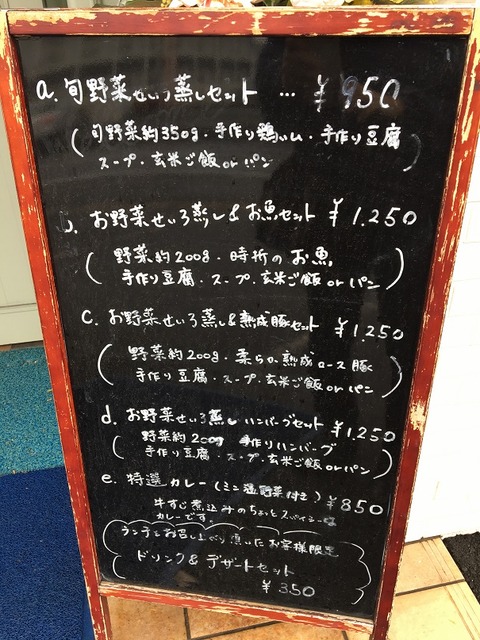 a. 旬野菜せいろ蒸しセット … ¥950
(旬野菜約350g・手作り鶏ハム・手作り豆腐
スープ・玄米ご飯orパン)
b. お野菜せいろ蒸し&お魚セット ¥1.250
(野菜約200g・時折のお魚,
手作り豆腐・スープ・玄米ご飯orパン)
c. お野菜せいろ蒸し&熟成豚セット ¥1.250
(野菜約200g・柔らか熟成ロース豚
手作り豆腐・スープ・玄米ご飯orパン)
d. お野菜せいろ蒸しハンバーグセット ¥1.250
(野菜約200g 手作りハンバーグ
手作り豆腐・スープ・玄米ご飯orパン)
e. 特選カレー(ミニ温野菜付き) ¥850
牛すじ煮込みのちょっとスパイシーな
カレーです。
ランチをお召し上がり頂いたお客様限定
ドリンク&デザートセット
¥350